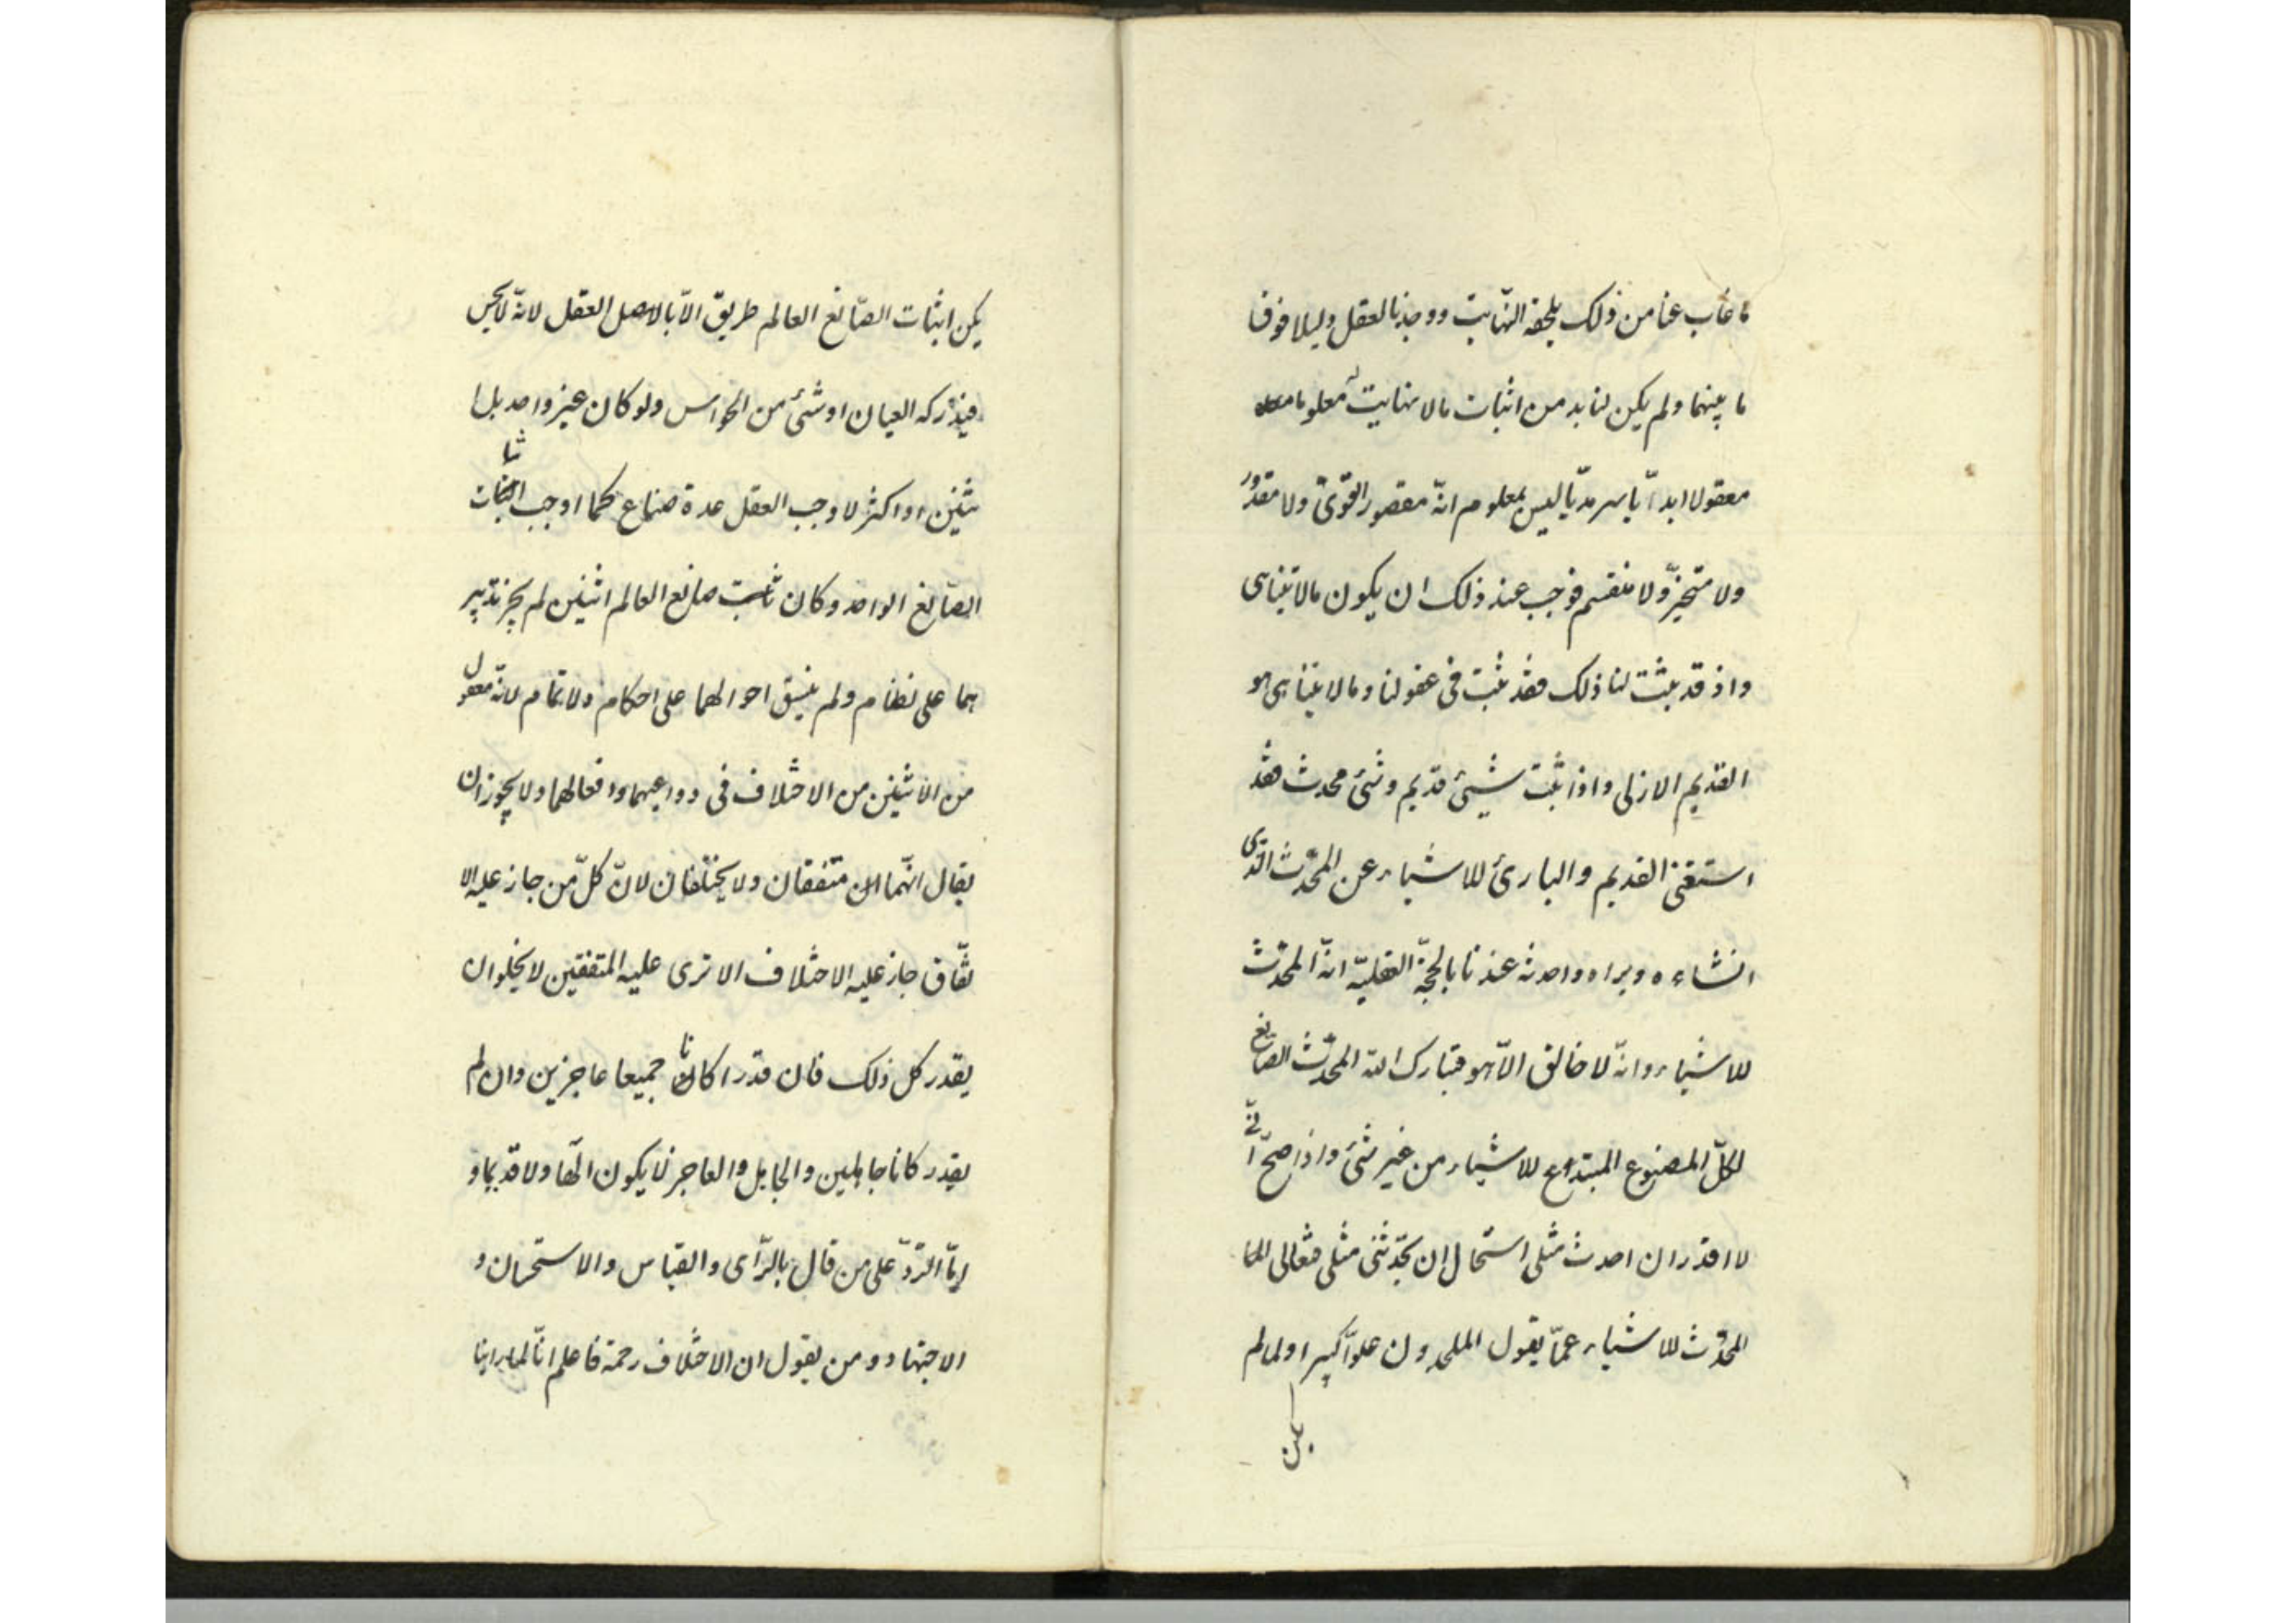 ما غاب عنا من ذلك يلحقه النهاية ووجدنا العقل دليلا فرقا
ما بينهما ولم يكن لنا بد من اثبات مالا نهاية له معلوما
معقولا ابدا يا سرمديا ليس بمعلوم انه مقصور القوى ولا مقدور
ولا متحيز ولا منقسم فوجب عند ذلك ان يكون مالا يتناهى
واذ قد يثبت لنا ذلك فقد ثبت فى عقولنا ومالا يتناهى هو
القديم الازلى واذا ثبت شيئ قديم وشئ محدث فقد
استغنى القديم والبارئ للاشياء عن المحدث الذى
انشاءه وبراه واحدثه عندنا بالحجة العقلية انه المحدث
للاشياء وانه لا خالق الا هو فتبارك الله المحدث الصانع
لكل المصنوع المبتدع للاشياء من غير شئ واذا صح انى
لا اقدر ان احدث مثلى استحال ان يحدثنى مثلى فتعالى الله
المحدث للاشياء عما يقول الملحدون علوا كبيرا ولما لم
يكن
يكن اثبات الصانع العالم طريق الا بالاصل العقل لانه لا يحس
فيدركه العيان او شئ من الحواس ولو كان غير واحد بل ا
ثنين او اكثر لاوجب العقل عدة صناع كما اوجب اثبات
الصانع الواحد وكان ثابت صانع العالم اثنين لم يجر تدبير
هما على نظام ولم ينسق احوالهما على احكام ولا تمام لانه معقول
من الاثنين من الاختلاف فى دواعيهما وافعالهما ولا يجوز ان
يقال انهما الان متفقان ولا يختلفان لان كل من جاز عليه الا
تفاق جاز عليه الاختلاف الا ترى عليه المتفقين لا يخلو ان
يقدر كل ذلك فان قدرا كانا جميعا عاجزين وان لم
يقدر كانا جاهلين والجاهل والعاجز لا يكون الها ولا قديما و
اما الرد على من قال بالرأى والقياس والاستحسان و
الاجتهاد ومن يقول ان الاختلاف رحمة فاعلم انا لما راينا